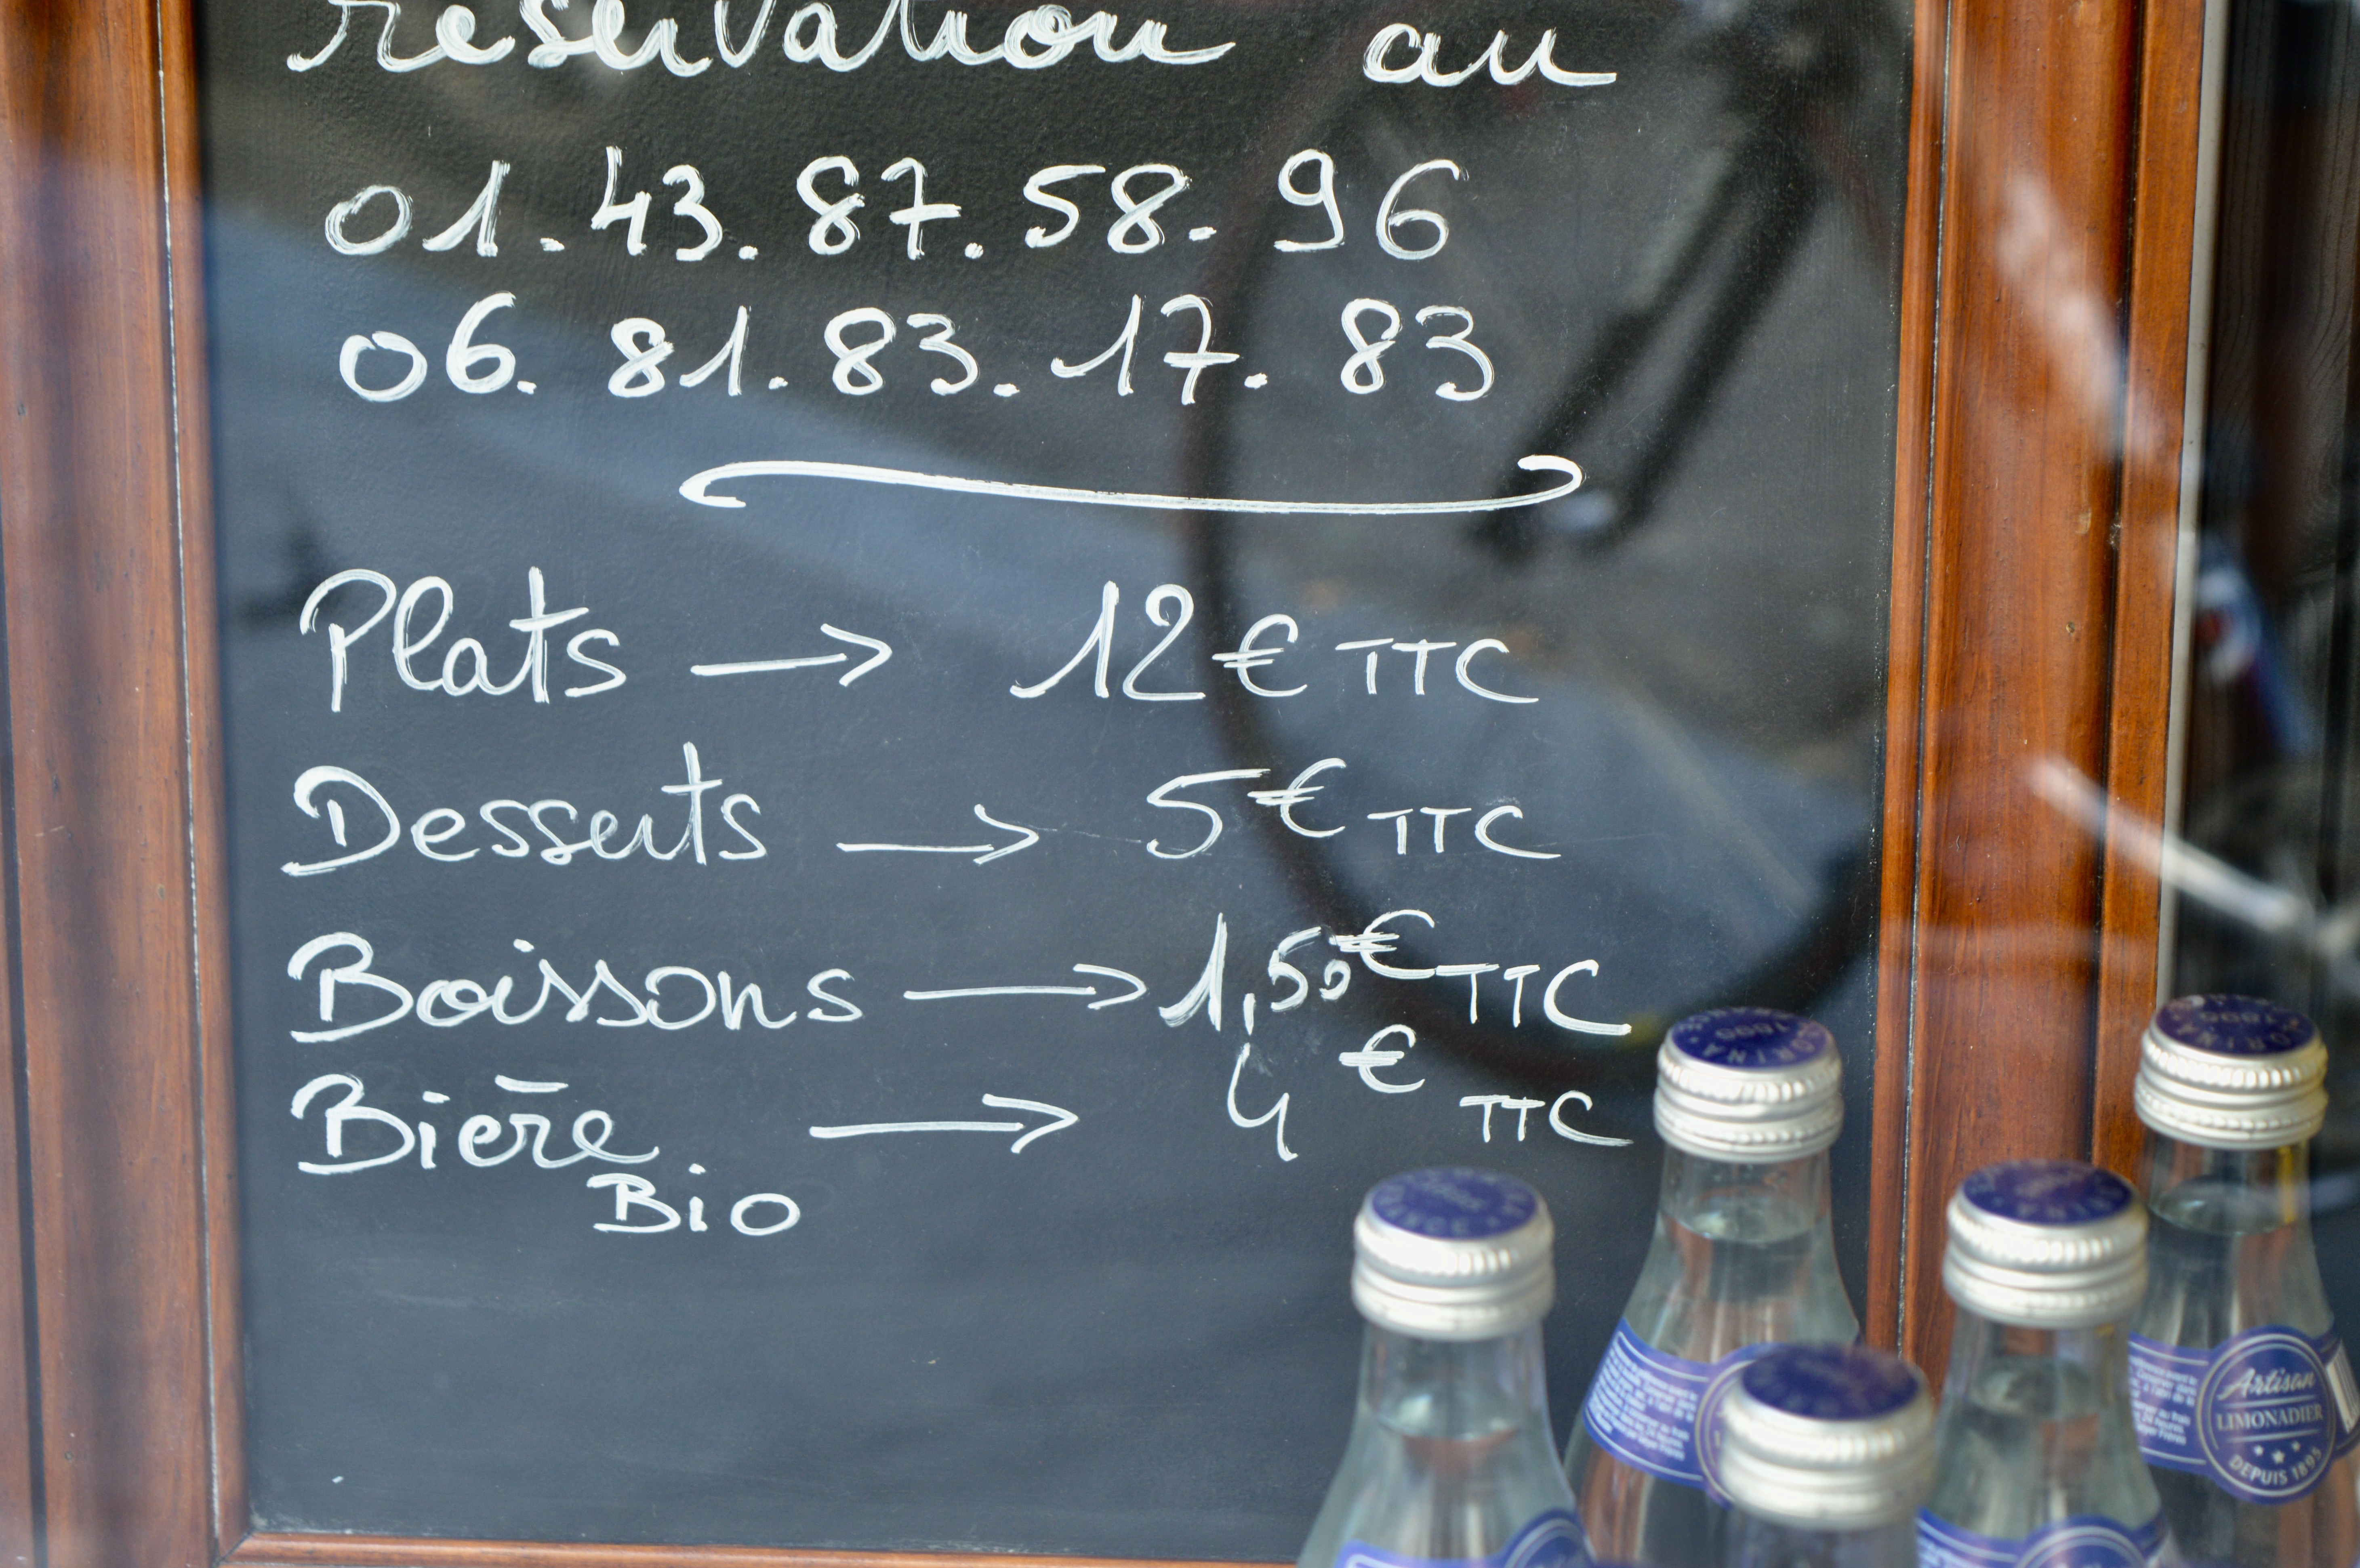 reservation au
01.43.87.58.96
06.81.83.17.83
Plats → 12€ TTC
Desserts → 5€ TTC
Boissons → 1,50€ TTC
Bière → 4€ TTC
Bio
Artisan
LIMONADIER
DEPUIS 1895